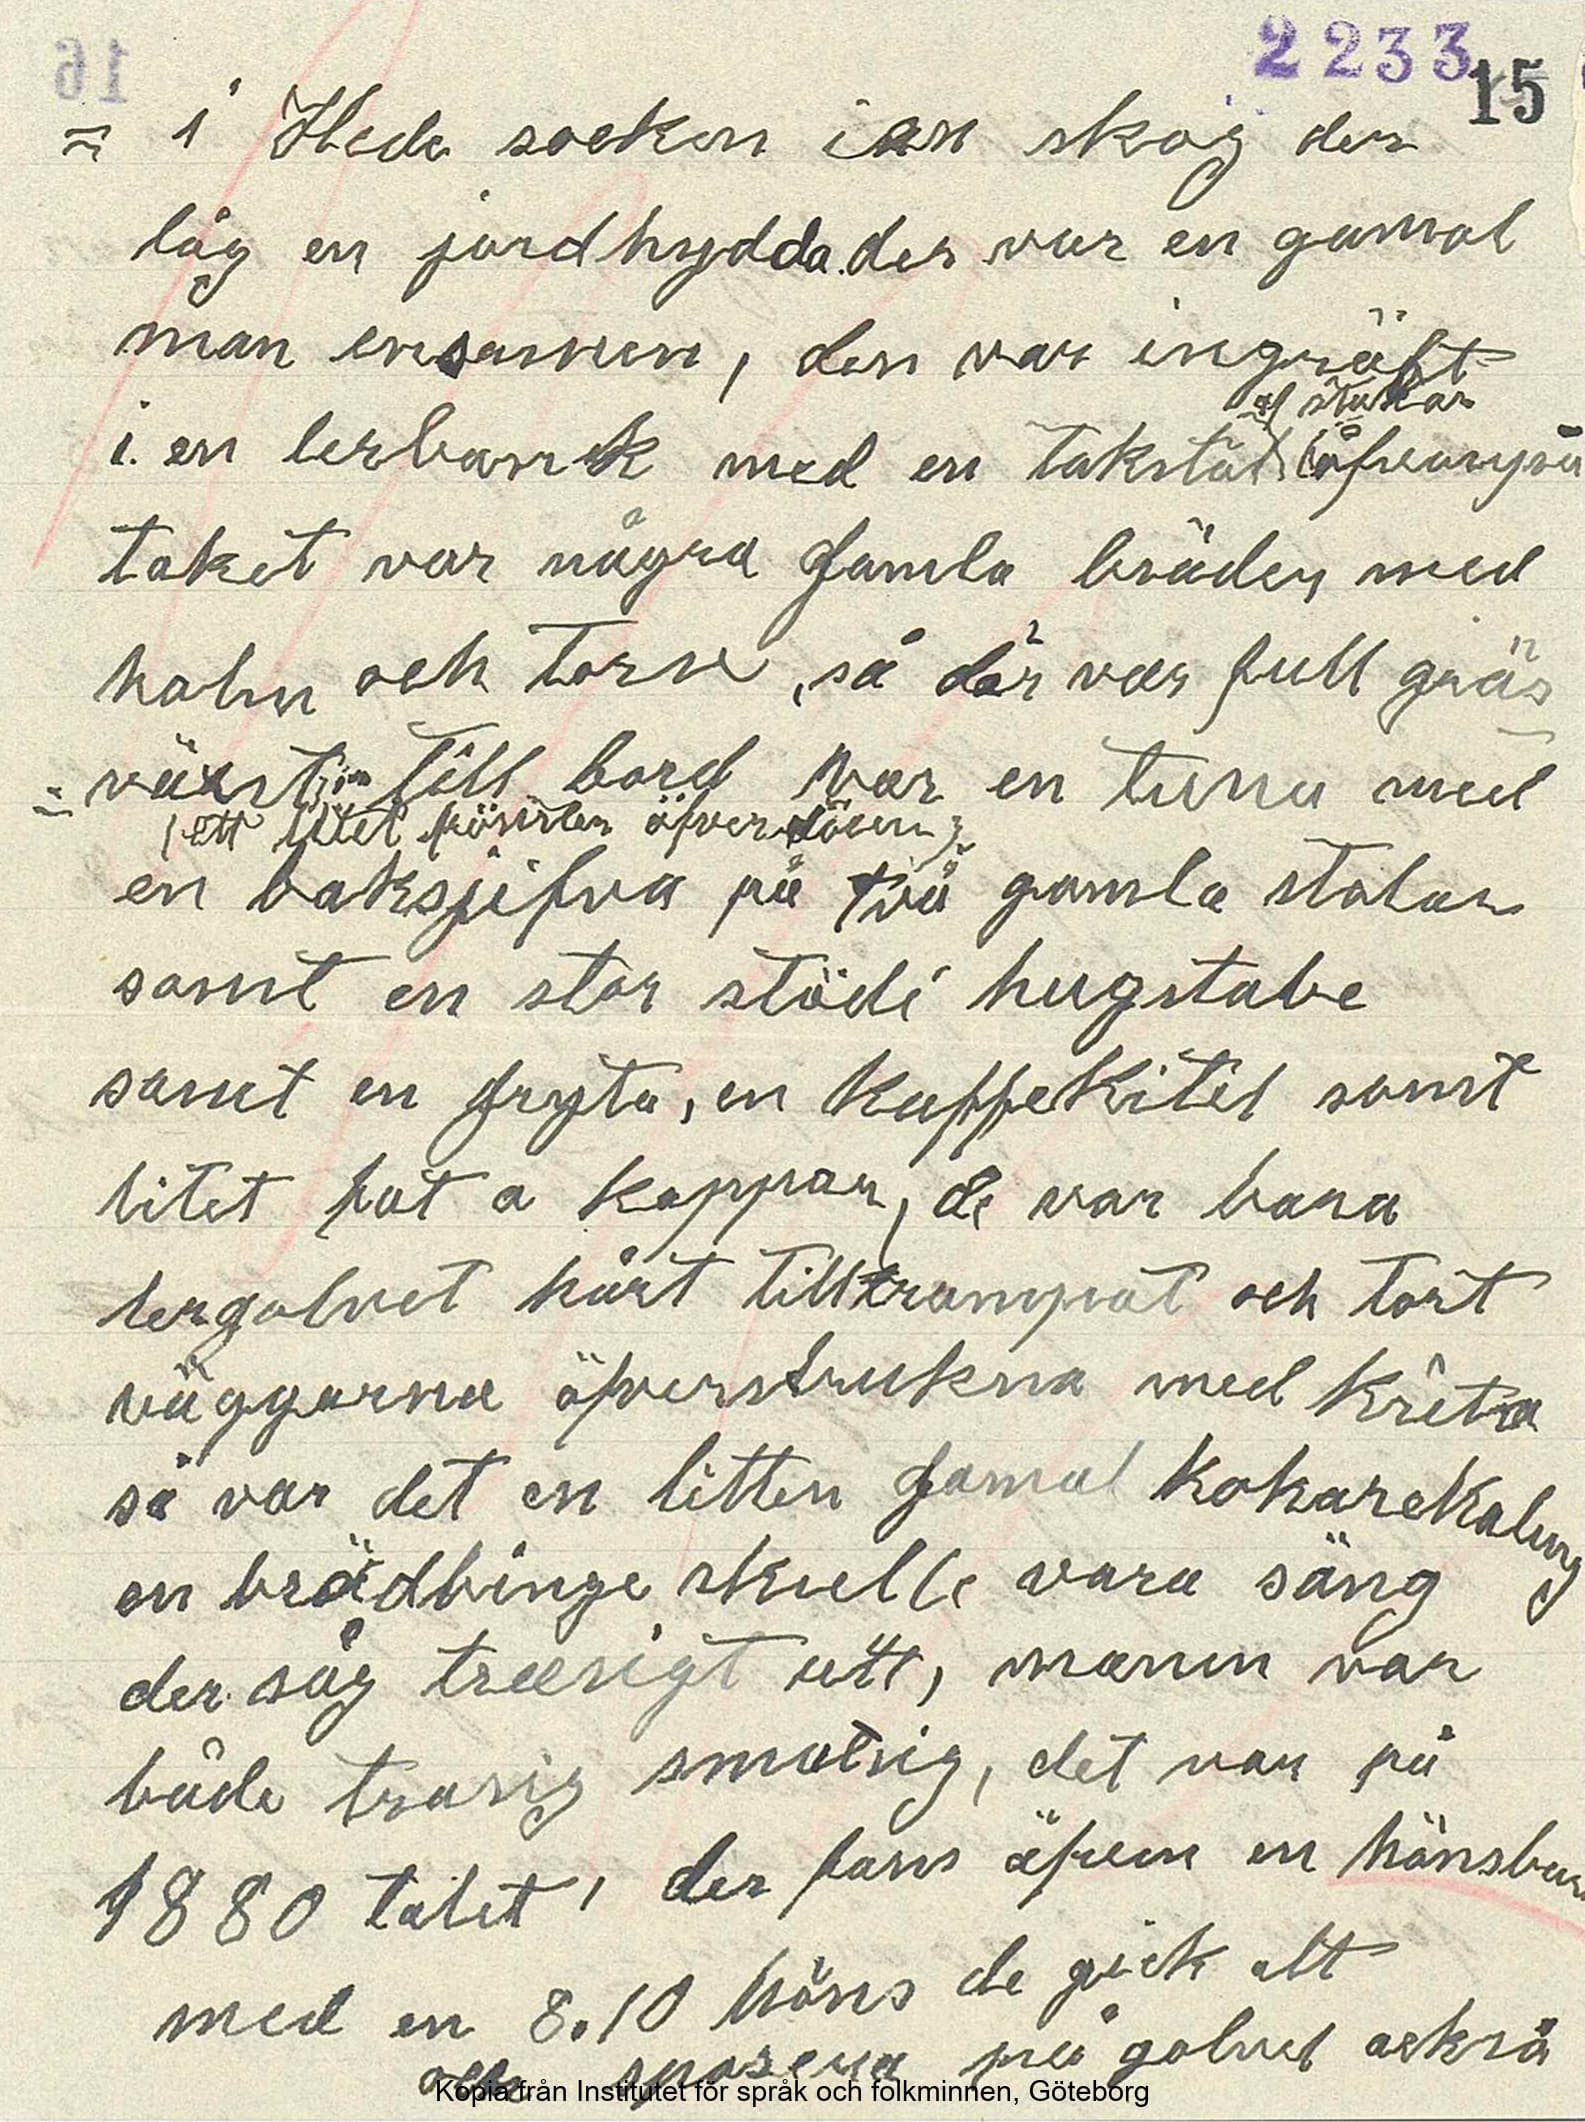 2233
15
i Hede socken i en skog der
låg en jordhydda. der var en gamal
man ensamen, den var ingräft
af stakar
i en lerbank med en takstol ofvanpå
taket var några gamla bräder med
halm och torv, så där var full gräs
växt, till bord var en tunna med
(ett litet fönster öfver dören)
en baksjifva på två gamla stolar
samt en stor städi hugstabe
samt en gryta, en kaffekitel samt
litet fat a koppar, de var bara
lergolvet hårt tilltrampat och tort
väggarna öfverstrukna med krita
så var det en litten gamal kokarekalung
en brädbinge skulle vara säng
der såg trasigt utt, manen var
både trasig smutsig, det var på
1880 talet, der fans äfven en hönsbur
med en 8.10 höns de gick alt
och på golvet också
Kopia från Institutet för språk och folkminnen, Göteborg